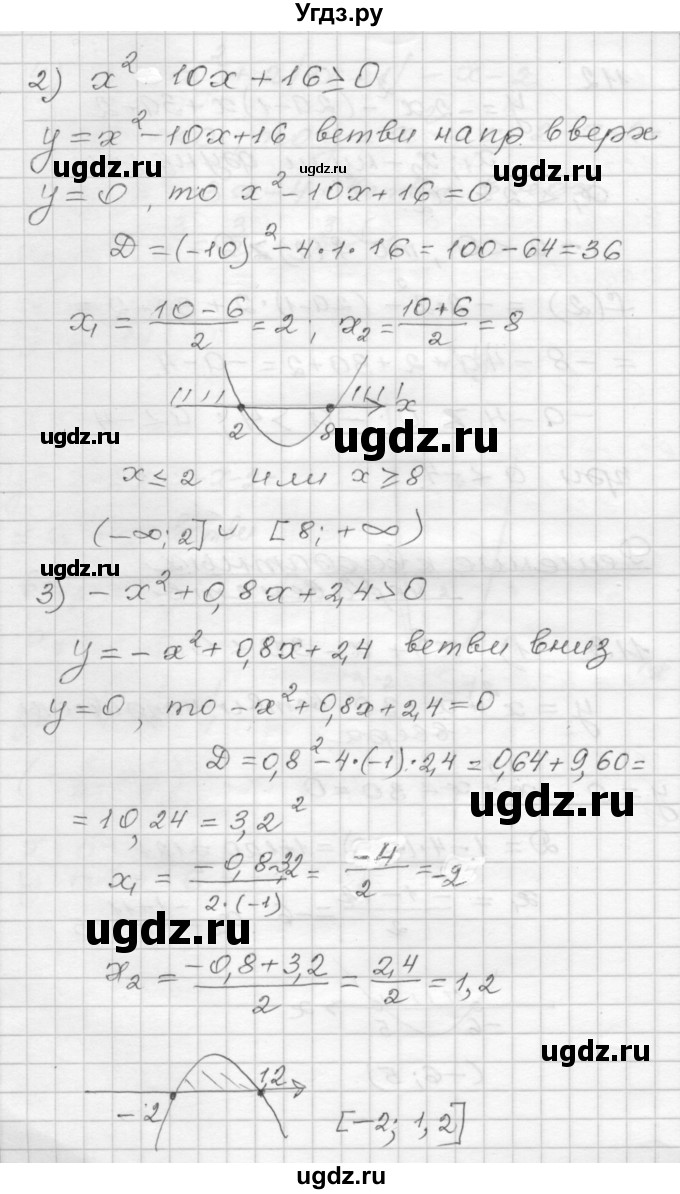 Угдз.ру
2) x² 10x + 16 ≥ 0
y = x² - 10x + 16 ветви напр. вверх
ugdz.ru ugdz.ru
y = 0, то x² - 10x + 16 = 0
D = (-10)² - 4·1·16 = 100 - 64 = 36
x₁ = (10 - 6)/2 = 2; x₂ = (10 + 6)/2 = 8
2 8 x
ugdz.ru ugdz.ru
x ≤ 2 или x ≥ 8
(-∞; 2] ∪ [8; +∞)
ugdz.ru
3) - x² + 0,8x + 2,4 > 0
y = - x² + 0,8x + 2,4 ветви вниз
ugdz.ru ugdz.ru
y = 0, то - x² + 0,8x + 2,4 = 0
D = 0,8² - 4·(-1)·2,4 = 0,64 + 9,60 =
ugdz.ru
= 10,24 = 3,2²
x₁ = (-0,8 3,2)/(2·(-1)) = -4/2 = -2
ugdz.ru
x₂ = (-0,8 + 3,2)/2 = 2,4/2 = 1,2
ugdz.ru
-2 1,2
[-2; 1,2]
ugdz.ru ugdz.ru
ugdz.ru